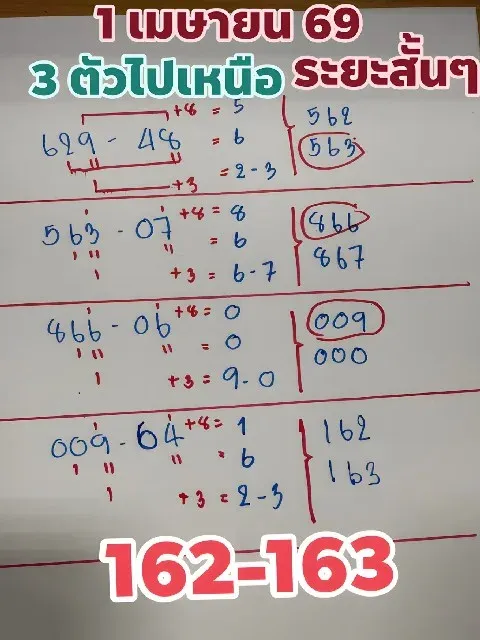 1 เมษายน 69
3 ตัวไปเหนือ ระยะสั้นๆ
629 - 48 +8 = 5
= 6
+3 = 2-3
562
563
563 - 07 +8 = 8
= 6
+3 = 6-7
866
867
866 - 06 +8 = 0
= 0
+3 = 9-0
009
000
009 - 64 +8 = 1
= 6
+3 = 2-3
162
163
162-163